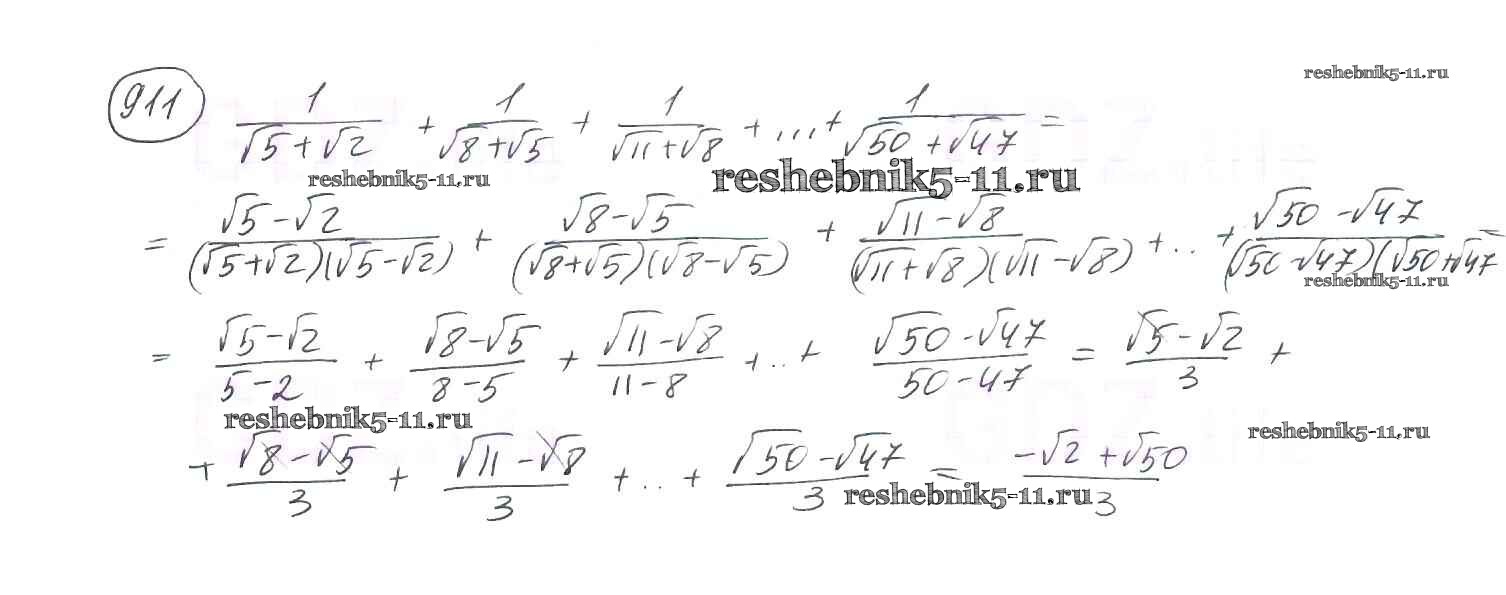 reshebnik5-11.ru
911 1/(√5+√2) + 1/(√8+√5) + 1/(√11+√8) + ... + 1/(√50+√47) =
reshebnik5-11.ru reshebnik5-11.ru
= (√5-√2)/((√5+√2)(√5-√2)) + (√8-√5)/((√8+√5)(√8-√5)) + (√11-√8)/((√11+√8)(√11-√8)) + .. + (√50-√47)/((√50-√47)(√50+√47 =
reshebnik5-11.ru
= (√5-√2)/(5-2) + (√8-√5)/(8-5) + (√11-√8)/(11-8) + .. + (√50-√47)/(50-47) = (√5-√2)/3 +
reshebnik5-11.ru reshebnik5-11.ru
+ (√8-√5)/3 + (√11-√8)/3 + .. + (√50-√47)/3 = (-√2+√50)/3
reshebnik5-11.ru